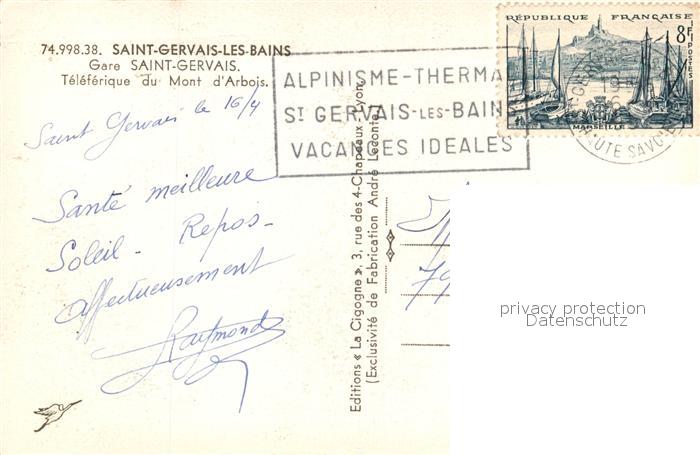 74.998.38. SAINT-GERVAIS-LES-BAINS
Gare SAINT-GERVAIS.
Téléférique du Mont d'Arbois.
Saint Gervais le 16/4
Santé meilleure
Soleil - Repos -
affectueusement
Raymonde
Editions « La Cigogne », 3, rue des 4-Chapeaux - Lyon
(Exclusivité de Fabrication André Leconte)
ALPINISME-THERMA
ST GERVAIS-LES-BAIN
VACANCES IDEALES
RÉPUBLIQUE FRANÇAISE
8F
POSTES
MARSEILLE
HAUTE SAVOIE
privacy protection
Datenschutz